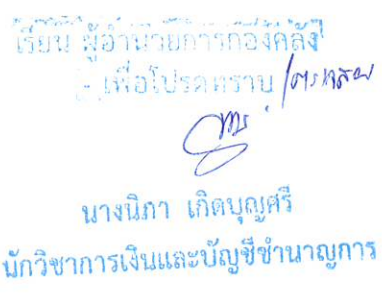 เรียน ผู้อำนวยการกองคลัง
- เพื่อโปรดทราบ
นางนิภา เกิดบุญศรี
นักวิชาการเงินและบัญชีชำนาญการ